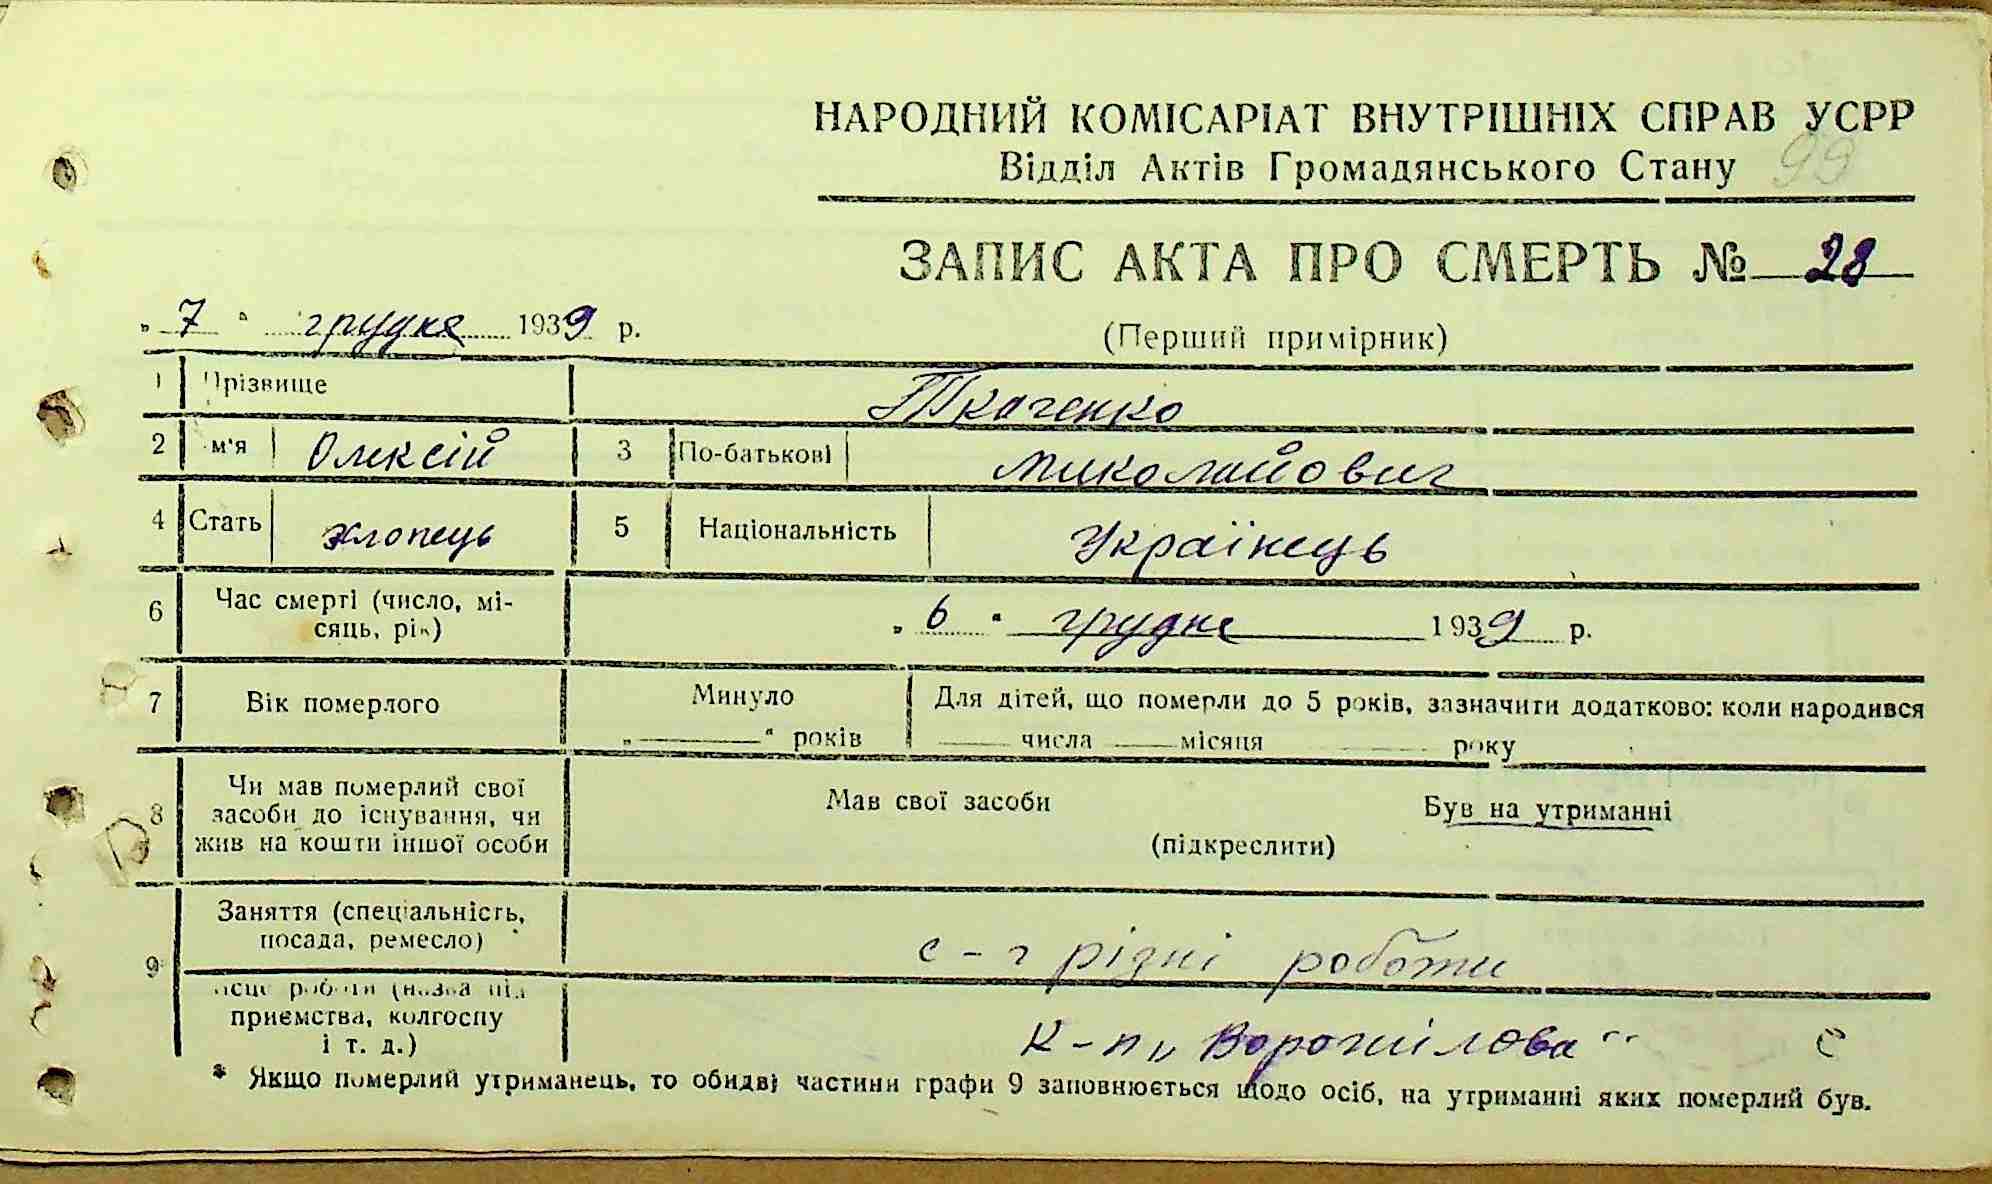 НАРОДНИЙ КОМІСАРІАТ ВНУТРІШНІХ СПРАВ УСРР
Відділ Актів Громадянського Стану 99
ЗАПИС АКТА ПРО СМЕРТЬ № 28
„ 7 " грудня 1939 р.
(Перший примірник)
1 Прізвище Ткаченко
2 м'я Олексій 3 По-батькові Миколайович
4 Стать хлопець 5 Національність Українець
6 Час смерті (число, мі-
сяць, рік)
„ 6 " грудня 1939 р.
7 Вік померлого
Минуло
„ — " років
Для дітей, що померли до 5 років, зазначити додатково: коли народився
числа місяця року
8 Чи мав померлий свої
засоби до існування, чи
жив на кошти іншої особи
Мав свої засоби Був на утриманні
(підкреслити)
9 Заняття (спеціальність,
посада, ремесло)
с-г різні роботи
ісце роботи (назва під
приємства, колгоспу
і т. д.)
к-п „Ворошілова" с
* Якщо померлий утриманець, то обидві частини графи 9 заповнюється щодо осіб, на утриманні яких померлий був.